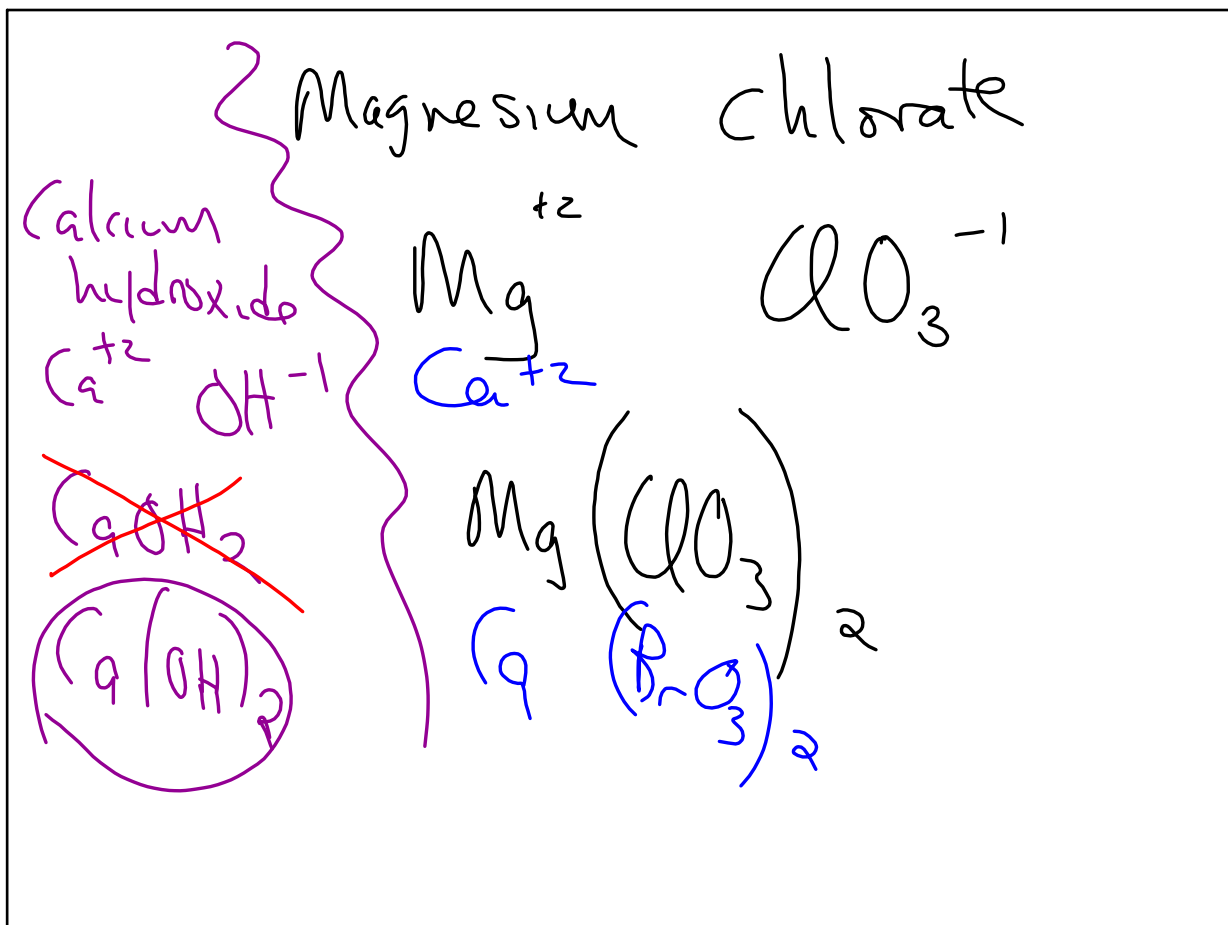 Magnesium Chlorate
Mg +2 ClO3 -1
Ca +2
Mg (ClO3)2
Ca (BrO3)2
Calcium
hydroxide
Ca +2 OH -1
CaOH2
Ca(OH)2